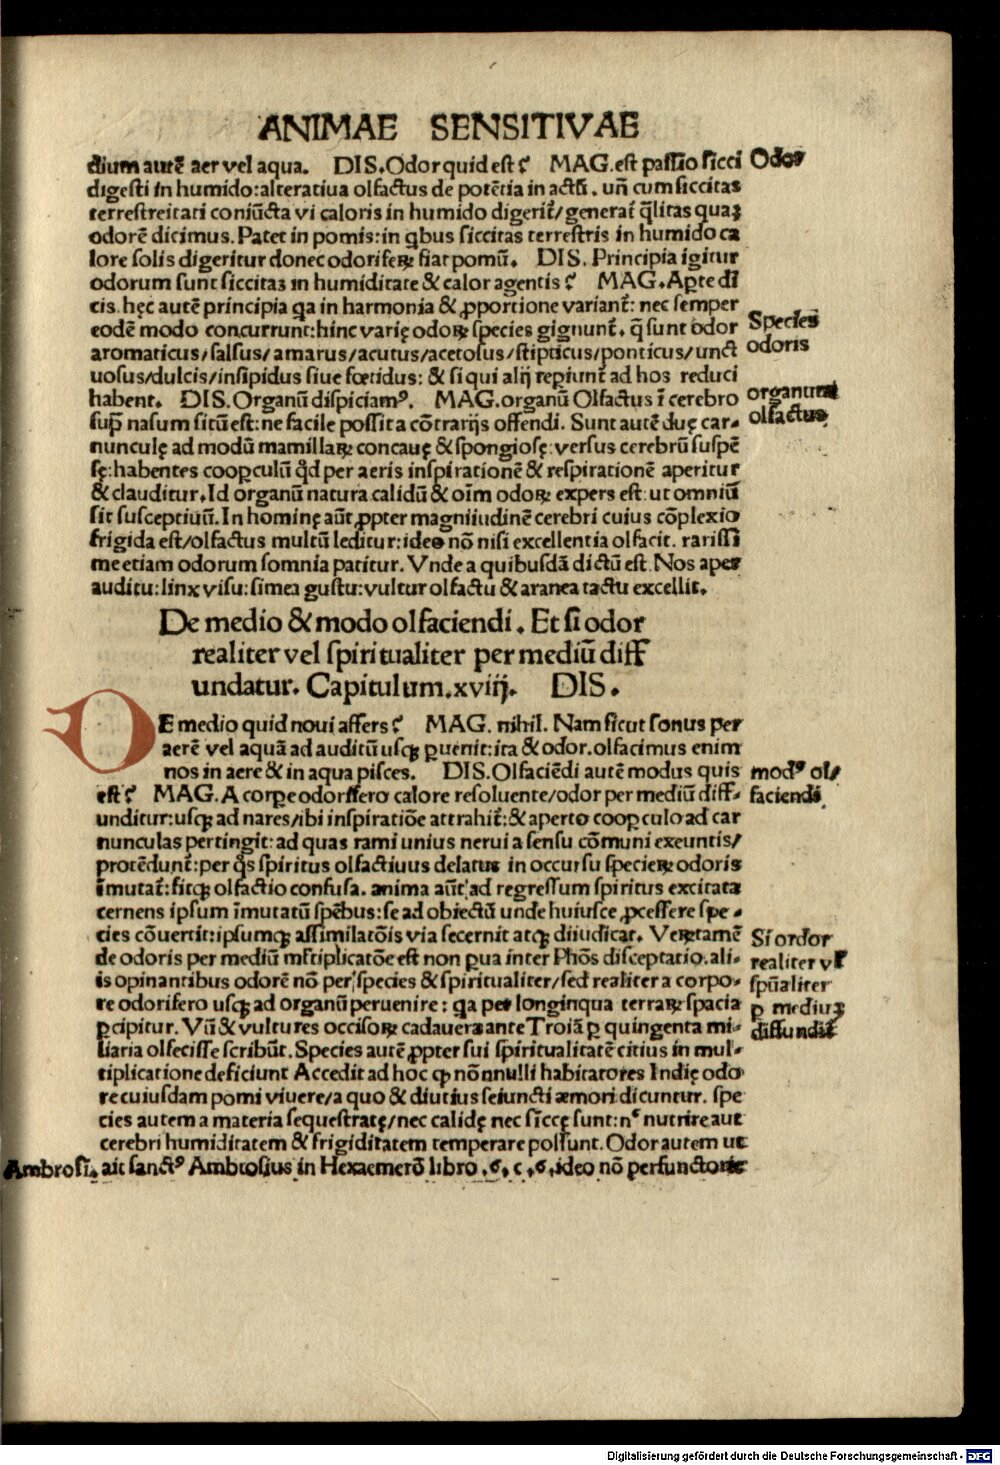 ANIMAE SENSITIVAE
dium autē aer vel aqua. DIS. Odor quid est? MAG. est passio sicci
Odor
digesti in humido: alteratiua olfactus de potētia in actū. un̄ cum siccitas
terrestreitati coniūcta vi caloris in humido digerit̄/ generat̄ q̄litas quaꝫ
odorē dicimus. Patet in pomis: in qbus siccitas terrestris in humido ca
lore solis digeritur donec odoriferꝝ fiat pomū. DIS. Principia igitur
odorum sunt siccitas in humiditate & calor agentis? MAG. Apte di
cis. hęc autē principia qa in harmonia & ꝓportione variant̄: nec semper
eodē modo concurrunt: hinc varię odoꝝ species gignunt̄. q̄ sunt odor
Species
odoris
aromaticus/ salsus/ amarus/ acutus/ acetosus/ stipticus/ ponticus/ unct
uosus/ dulcis/ insipidus siue fœtidus: & si qui alij reꝑiunt̄ ad hos reduci
habent. DIS. Organū dispiciamꝰ. MAG. organū Olfactus ī cerebro
organum
olfactus
sup̄ nasum sitū est: ne facile possit a cōtrarijs offendi. Sunt autē duę car-
nunculę ad modū mamillaꝝ concauę & spongiosę: versus cerebrū suspē
sę: habentes cooꝑculū qd̄ per aeris inspirationē & respirationē aperitur
& clauditur. Id organū natura calidū & oīm odoꝝ expers est: ut omniū
sit susceptiuū. In homine aūt ꝓpter magniiudinē cerebri cuius cōplexio
frigida est/ olfactus multū leditur: ideo nō nisi excellentia olfacit. rarissi
me etiam odorum somnia patitur. Vnde a quibusdā dictū est. Nos aper
auditu: linx visu: simea gustu: vultur olfactu & aranea tactu excellit.
De medio & modo olfaciendi. Et si odor
realiter vel spiritualiter per mediū diff
undatur. Capitulum. xviij. DIS.
DE medio quid noui affers? MAG. nihil. Nam sicut sonus per
aerē vel aquā ad auditū usqꝫ ꝑuenit: ita & odor. olfacimus enim
nos in aere & in aqua pisces. DIS. Olfaciēdi autē modus quis
modꝰ ol/
faciendi
est? MAG. A corꝑe odorifero calore resoluente/ odor per mediū diff-
unditur: usqꝫ ad nares/ ibi inspiratiōe attrahit̄: & aperto cooꝑculo ad car
nunculas pertingit: ad quas rami unius nerui a sensu cōmuni exeuntis/
protēdunt̄: per q̄s spiritus olfactiuus delatus in occursu specieꝝ odoris
īmutat̄: fitqꝫ olfactio confusa. anima aūt ad regressum spiritus excitata
cernens ipsum īmutatū spēbus: se ad obiectū unde huiusce ꝓcessere spe-
cies cōuertit: ipsumqꝫ assimilatōis via secernit atqꝫ diiudicat. Veꝝtamē
de odoris per mediū mltiplicatōe est non ꝑua inter Phōs disceptatio. ali-
Si ordor
realiter vel
spūaliter
ꝑ mediuꝫ
diffundit
is opinantibus odorē nō per species & spiritualiter/ sed realiter a corpo-
re odorifero usqꝫ ad organū peruenire: qa per longinqua terraꝝ spacia
ꝑcipitur. Vn̄ & vultures occisoꝝ cadauera ante Troiā ꝑ quingenta mi-
liaria olfecisse scribūt. Species autē ꝓpter sui spiritualitatē citius in mul-
tiplicatione deficiunt Accedit ad hoc ꝙ nōnnulli habitatores Indię odo
re cuiusdam pomi viuere/ a quo & diutius seiuncti æmori dicuntur. spe
cies autem a materia sequestratę/ nec calidę nec siccę sunt: nᶜ nutrire aut
cerebri humiditatem & frigiditatem temperare possunt. Odor autem ut
Ambrosi. ait sanctꝰ Ambrosius in Hexaemerō libro .6. c .6. ideo nō perfunctorie
Digitalisierung gefördert durch die Deutsche Forschungsgemeinschaft - DFG